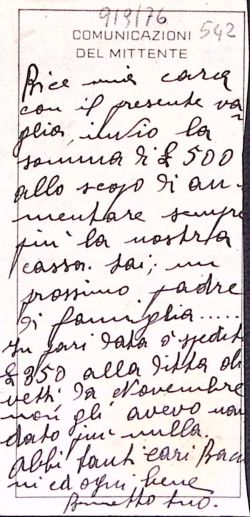 9/3/76
542
COMUNICAZIONI
DEL MITTENTE
Bice mia cara
con il presente va
glia, invio la
somma di £ 500
allo scopo di au
mentare sempre
più la nostra
cassa. Sai; un
prossimo padre
di famiglia.....
In pari data ò spedito
£ 350 alla ditta Oli
vetti da Novembre
non gli avevo man
dato più nulla.
Abbi tanti cari Baci
ni ed ogni bene
Brunetto tuo.